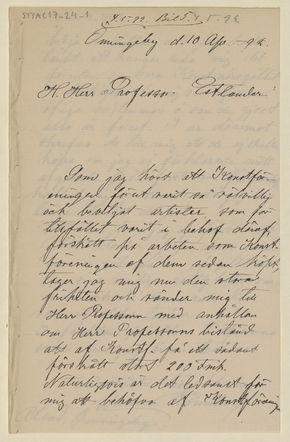 STYAC17-24-1
Önningeby d. 10 Apr. -92.
H. Herr Professor Estlander!
Som jag hört att Konstföre-
ningen förut varit så välvillig
och beviljat artister som för
tillfället varit i behof deraf,
förskott på arbeten som Konst-
föreningen af dem sedan köpt
tager jag mig nu den stora
friheten och vänder mig till
Herr Professorn med anhållan
om Herr Professorns bistånd
att af Konstf. få ett sådant
förskott stort 200 Fmk.
Naturligtvis är det ledsamt för
mig att behöfva af Konstförening